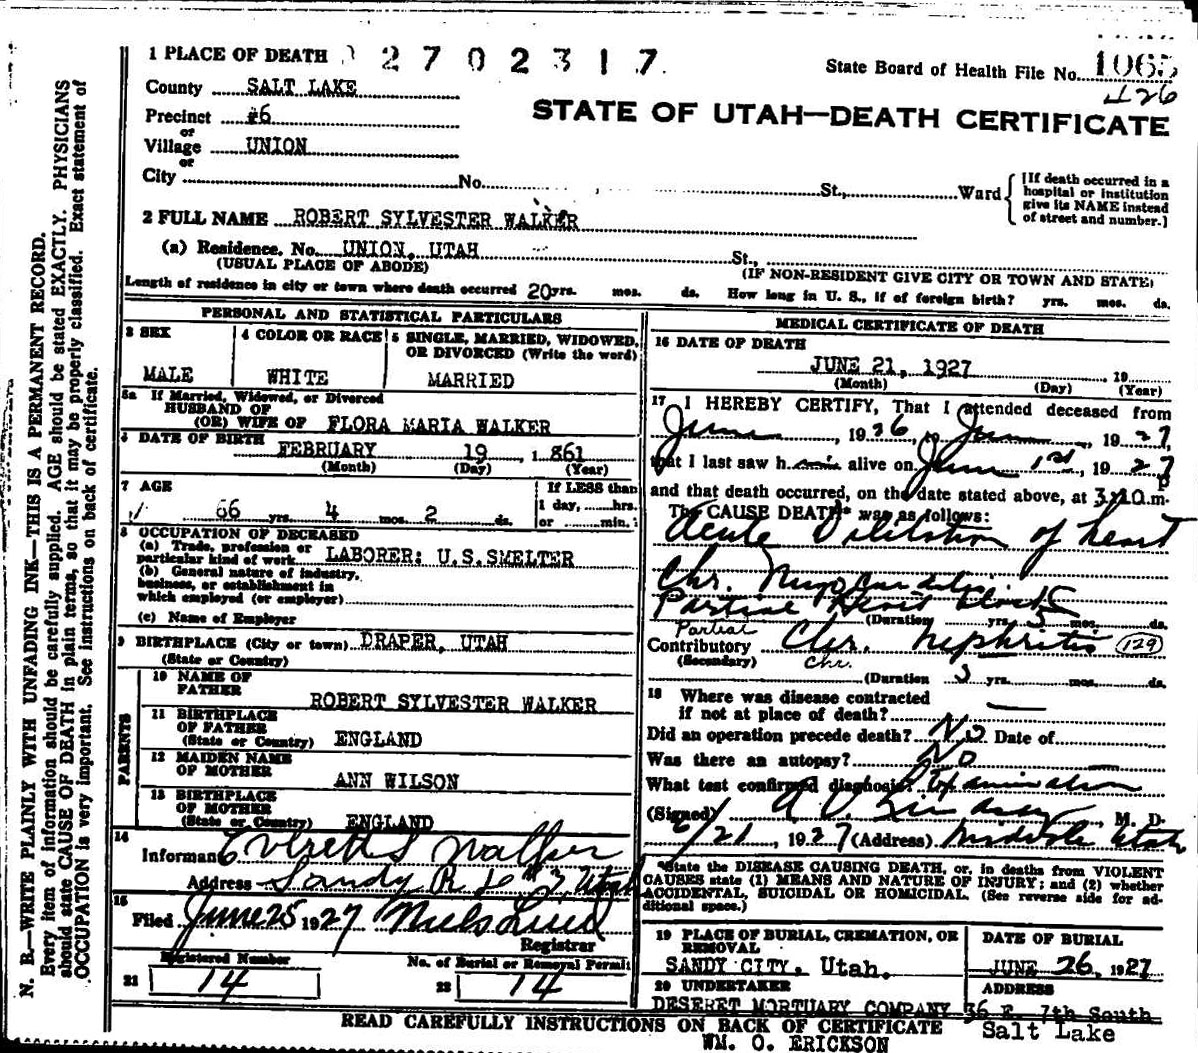 1 PLACE OF DEATH 2 7 0 2 3 1 7
State Board of Health File No. 1065
426
County SALT LAKE
Precinct #6
or
Village UNION
or
City No. St., Ward
STATE OF UTAH—DEATH CERTIFICATE
[If death occurred in a
hospital or institution
give its NAME instead
of street and number.]
2 FULL NAME ROBERT SYLVESTER WALKER
(a) Residence. No. UNION, UTAH St.,
(USUAL PLACE OF ABODE) (IF NON-RESIDENT GIVE CITY OR TOWN AND STATE)
Length of residence in city or town where death occurred 20 yrs. mos. ds. How long in U. S., if of foreign birth? yrs. mos. ds.
PERSONAL AND STATISTICAL PARTICULARS
3 SEX
MALE
4 COLOR OR RACE
WHITE
5 SINGLE, MARRIED, WIDOWED,
OR DIVORCED (Write the word)
MARRIED
5a If Married, Widowed, or Divorced
HUSBAND OF
(OR) WIFE OF FLORA MARIA WALKER
6 DATE OF BIRTH
FEBRUARY 19, 1861
(Month) (Day) (Year)
7 AGE
66 yrs. 4 mos. 2 ds.
If LESS than
1 day, ......hrs.
or ......min.
8 OCCUPATION OF DECEASED
(a) Trade, profession or
particular kind of work LABORER: U.S. SMELTER
(b) General nature of industry,
business, or establishment in
which employed (or employer)
(c) Name of Employer
9 BIRTHPLACE (City or town) DRAPER, UTAH
(State or Country)
PARENTS
10 NAME OF
FATHER
ROBERT SYLVESTER WALKER
11 BIRTHPLACE
OF FATHER
(State or Country) ENGLAND
12 MAIDEN NAME
OF MOTHER
ANN WILSON
13 BIRTHPLACE
OF MOTHER
(State or Country) ENGLAND
14
Informant Everett S Walker
Address Sandy R Utah
15
Filed June 25 1927 Niels Lind
Registrar
Registered Number
21 14
No. of Burial or Removal Permit
22 14
MEDICAL CERTIFICATE OF DEATH
16 DATE OF DEATH
JUNE 21, 1927, 19
(Month) (Day) (Year)
17 I HEREBY CERTIFY, That I attended deceased from
June, 1926, to June, 1927
that I last saw him alive on June 1st, 1927
and that death occurred, on the date stated above, at 3:10 p m.
The CAUSE DEATH* was as follows:
Acute Dilitation of heart
Chr. Myocarditis
Partial Heart Block
(Duration yrs. 5 mos. ds.
Partial
Contributory Chr. Nephritis (129)
(Secondary) Chr.
(Duration 5 yrs. mos. ds.
18 Where was disease contracted
if not at place of death?
Did an operation precede death? No Date of
Was there an autopsy? No
What test confirmed diagnosis? Examination
(Signed) A V. Lindsay, M. D.
6/21, 1927 (Address) Midvale Utah
*State the DISEASE CAUSING DEATH, or, in deaths from VIOLENT
CAUSES state (1) MEANS AND NATURE OF INJURY; and (2) whether
ACCIDENTAL, SUICIDAL OR HOMICIDAL. (See reverse side for ad-
ditional space.)
19 PLACE OF BURIAL, CREMATION, OR
REMOVAL
SANDY CITY, Utah.
DATE OF BURIAL
JUNE 26, 1927
20 UNDERTAKER
DESERET MORTUARY COMPANY
ADDRESS
36 E. 7th South
Salt Lake
READ CAREFULLY INSTRUCTIONS ON BACK OF CERTIFICATE
WM. O. ERICKSON
N. B.—WRITE PLAINLY WITH UNFADING INK—THIS IS A PERMANENT RECORD.
Every item of information should be carefully supplied. AGE should be stated EXACTLY. PHYSICIANS
should state CAUSE OF DEATH in plain terms, so that it may be properly classified. Exact statement of
OCCUPATION is very important. See instructions on back of certificate.